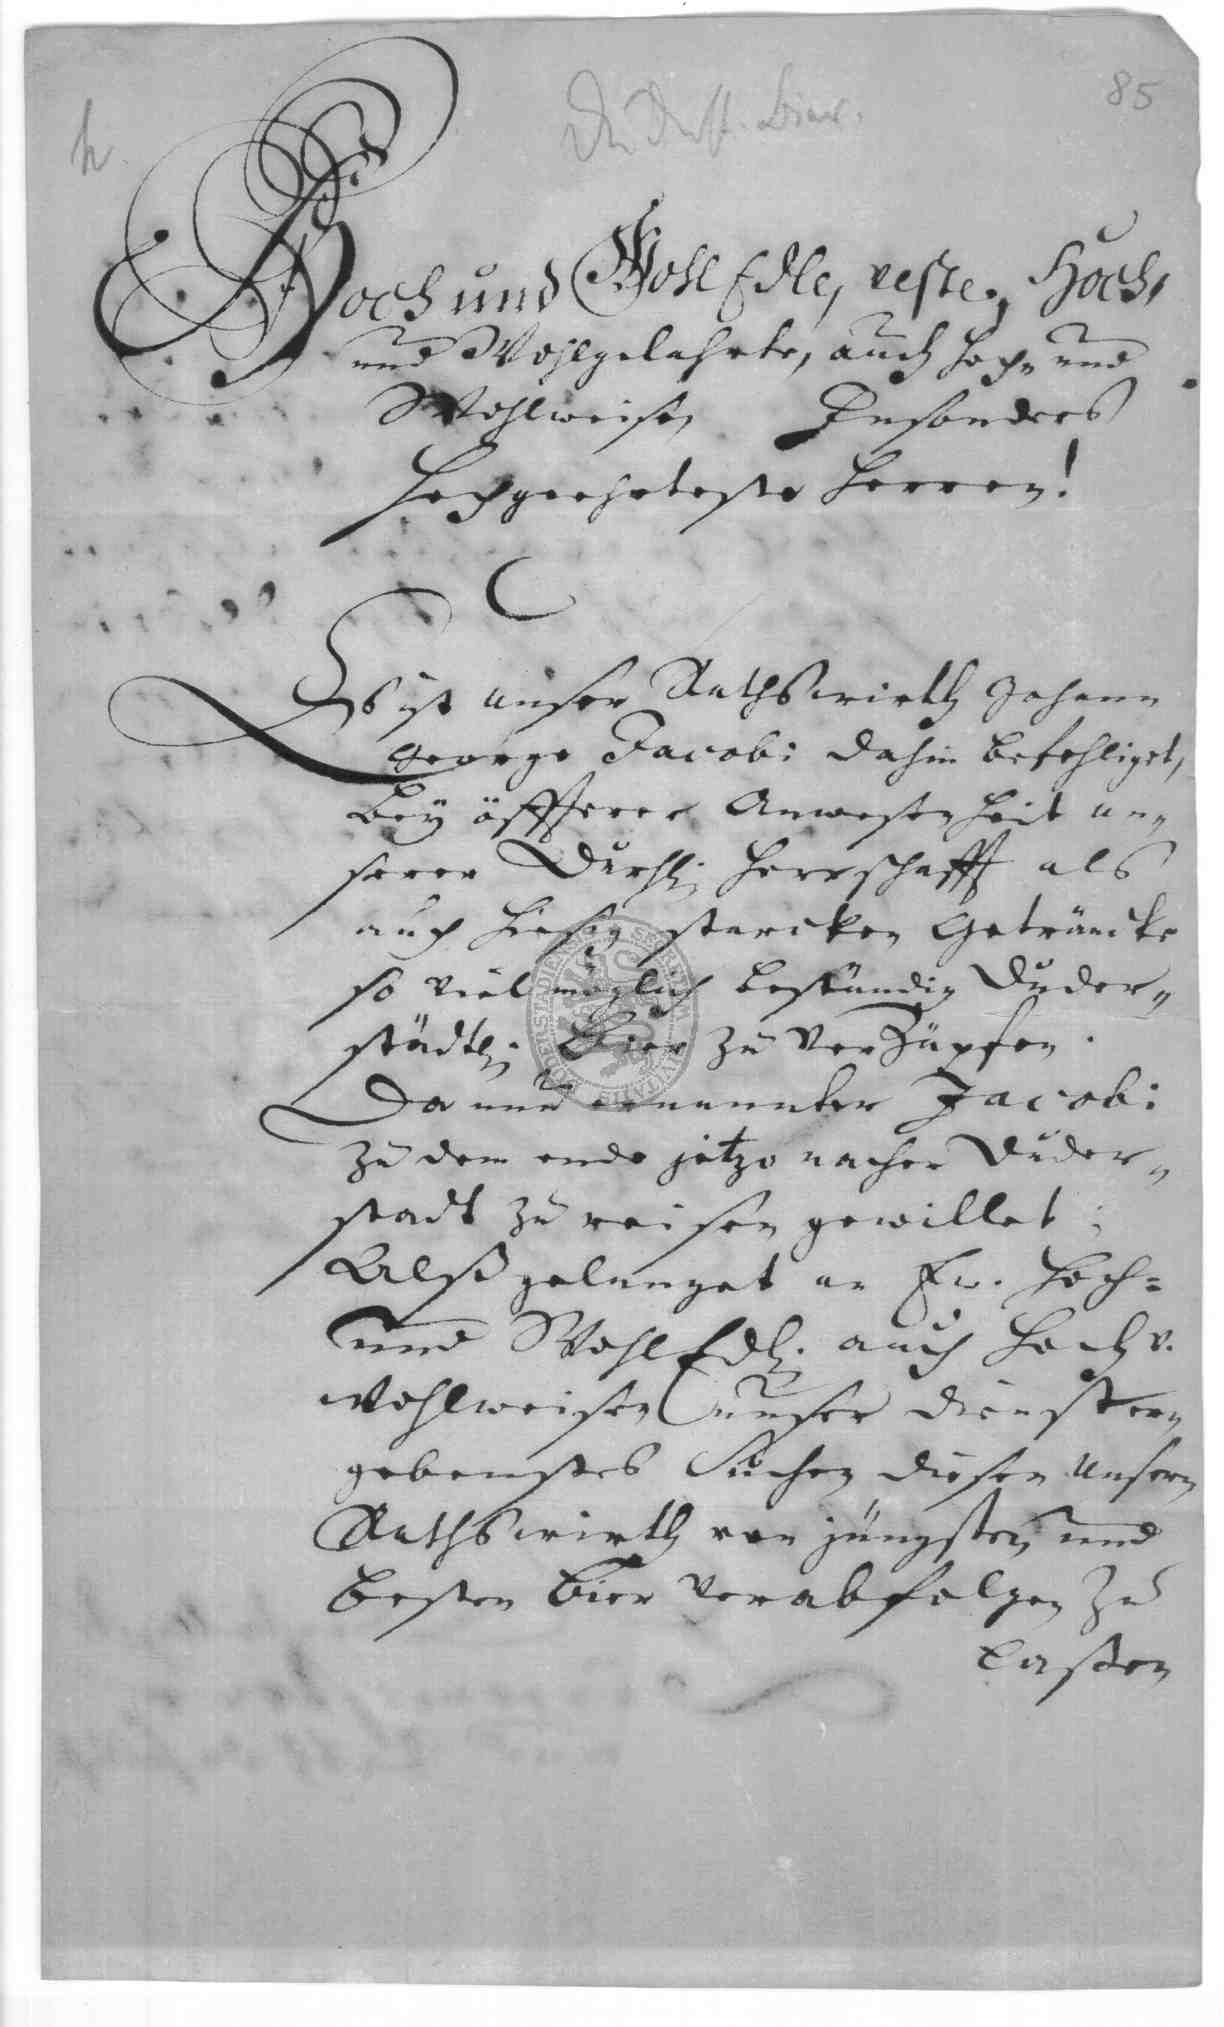 85
h
Hoch und Wohl Edle, veste, Hoch,
und Wohlgelahrte, auch hoch- und
Wohlweisen Insonders
hochgeehrteste Herren!
Es ist unser Rathswirth Johann
George Jacobi dahin befehliget,
bey öffterer Anwesenheit un-
serer Durchl. Herrschafft als
auch hiesig starcken Geträncke
so viel möglich beständig Duder-
städtl. Bier zu verzäpfen.
Da nun ernannter Jacobi
zu dem ende jetzo nacher Duder-
stadt zu reisen gewillet;
Alß gelanget an Ew. Hoch-
und WohlEdl. auch Hoch u.
wohlweisen unser dienster-
gebenstes Suchen diesen unsern
Rathswirth von jüngsten und
besten Bier verabfolgen zu
laßen